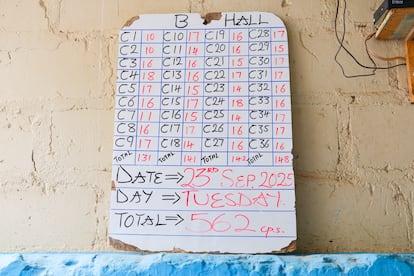 B HALL
C1 10 C10 17 C19 16 C28 17
C2 10 C11 14 C20 16 C29 15
C3 16 C12 16 C21 15 C30 17
C4 18 C13 16 C22 17 C31 17
C5 17 C14 15 C23 14 C32 16
C6 16 C15 17 C24 18 C33 16
C7 11 C16 15 C25 14 C34 17
C8 16 C17 17 C26 16 C35 17
C9 17 C18 14 C27 16 C36 16
TOTAL 131 TOTAL 141 TOTAL 142 TOTAL 148
DATE⇒ 23RD SEP 2025
DAY⇒ TUESDAY.
TOTAL⇒ 562 cps.